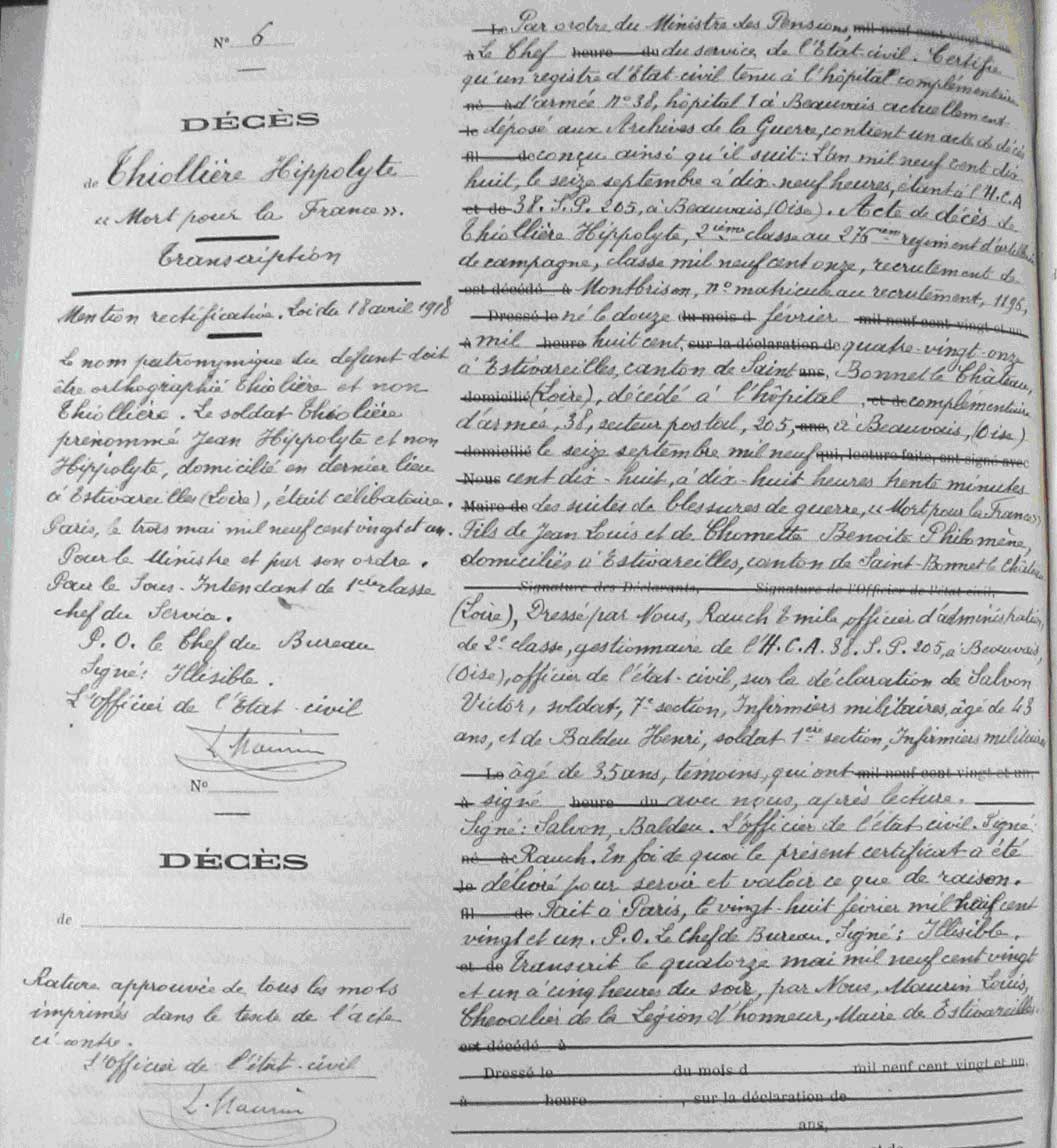 Nº 6
DÉCÈS
de Thiollière Hippolyte
"Mort pour la France".
Transcription
Mention rectificative. Loi du 18 avril 1918
Le nom patronymique du défunt doit
être orthographié Thiolière et non
Thiollière. Le soldat Thiolière
prénommé Jean Hippolyte et non
Hippolyte, domicilié en dernier lieu
à Estivareilles (Loire), était célibataire.
Paris, le trois mai mil neuf cent vingt et un.
Pour le Ministre et par son ordre.
Pour le Sous-Intendant de 1ère classe
chef du Service.
P. O. le Chef du Bureau
Signé: Illisible.
L'Officier de l'Etat-civil
L. Maurin
Nº
DÉCÈS
de
Rature approuvée de tous les mots
imprimés dans le texte de l'acte
ci-contre.
L'Officier de l'état-civil
L. Maurin
Le Par ordre du Ministre des Pensions, mil neuf cent vingt et un
à Le Chef heure du du service de l'Etat-civil. Certifie
qu'un registre d'Etat-civil tenu à l'hôpital complémentaire
né à d'armée nº 38, hôpital 1 à Beauvais actuellement
le déposé aux Archives de la Guerre, contient un acte de décès
fil de conçu ainsi qu'il suit: L'an mil neuf cent dix
huit, le seize septembre à dix-neuf heures, étant à l'H.C.A
et de 38. S.P. 205, à Beauvais, (Oise). Acte de décès de
Thiollière Hippolyte, 2ième classe au 275me régiment d'artillerie
de campagne, classe mil neuf cent onze, recrutement de
est décédé à Montbrison, nº matricule au recrutement, 1195,
Dressé le né le douze du mois d février mil neuf cent vingt et un
à mil heure huit cent, sur la déclaration de quatre-vingt-onze
à Estivareilles, canton de Saint ans, Bonnet le Château,
domicilié (Loire), décédé à l'hôpital , et de complémentaire
d'armée, 38, secteur postal, 205, ans, à Beauvais, (Oise)
domicilié le seize septembre mil neuf qui, lecture faite, ont signé avec
Nous cent dix-huit, à dix-huit heures trente minutes
Maire de des suites de blessures de guerre, "Mort pour la France"
Fils de Jean Louis et de Chomette Benoite Philomène,
domiciliés à Estivareilles, canton de Saint-Bonnet le Château
Signature des Déclarants, Signature de l'Officier de l'état civil,
(Loire), Dressé par Nous, Rauch Emile, officier d'administration
de 2e classe, gestionnaire de l'H.C.A. 38. S.P. 205, à Beauvais,
(Oise), officier de l'état-civil, sur la déclaration de Salvon
Victor, soldat, 7e section, Infirmiers militaires, âgé de 43
ans, et de Baldeu Henri, soldat 1ère section, Infirmiers militaires
Le âgé de 35 ans, témoins, qui ont mil neuf cent vingt et un,
à signé heure du avec nous, après lecture.
Signé: Salvon, Baldeu. L'officier de l'état civil. Signé:
né à Rauch. En foi de quoi le présent certificat a été
le délivré pour servir et valoir ce que de raison.
fil de Fait à Paris, le vingt-huit février mil neuf cent
vingt et un. P.O. Le Chef de Bureau. Signé: Illisible.
et de Transcrit le quatorze mai mil neuf cent vingt
et un à cinq heures du soir, par Nous, Maurin Louis,
Chevalier de la Légion d'honneur, Maire de Estivareilles.
est décédé à
Dressé le du mois d mil neuf cent vingt et un,
à heure , sur la déclaration de
ans,
et de